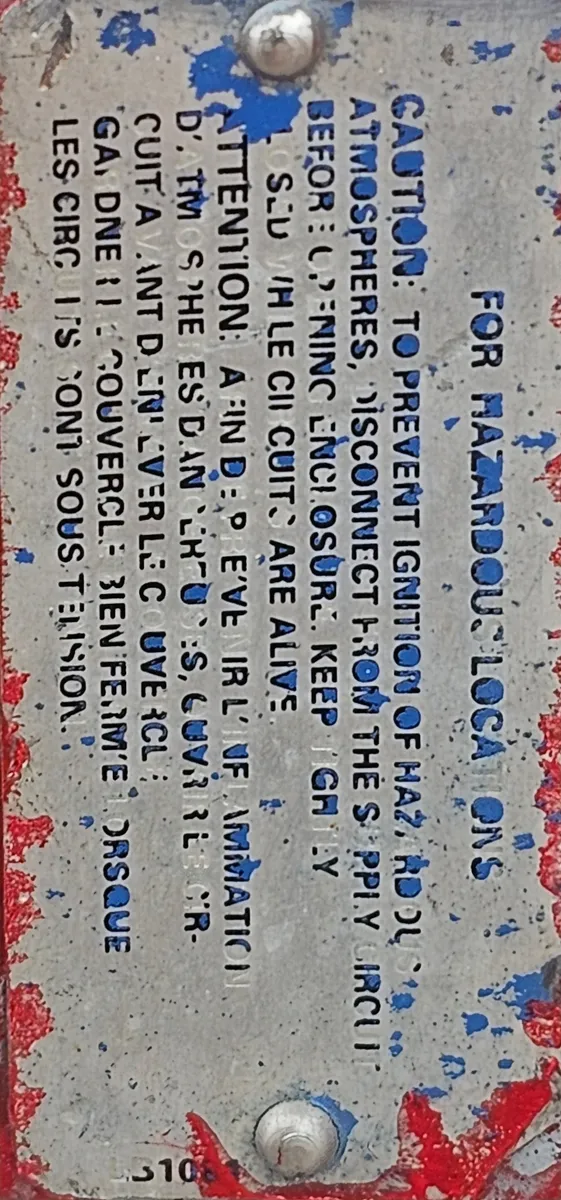 FOR HAZARDOUS LOCATIONS
CAUTION: TO PREVENT IGNITION OF HAZARDOUS
ATMOSPHERES, DISCONNECT FROM THE SUPPLY CIRCUIT
BEFORE OPENING ENCLOSURE. KEEP TIGHTLY
CLOSED WHILE CIRCUITS ARE ALIVE.
ATTENTION: AFIN DE PREVENIR L'INFLAMMATION
D'ATMOSPHERES DANGEREUSES, OUVRIR LE CIR-
CUIT AVANT D'ENLEVER LE COUVERCLE.
GARDNER LE COUVERCLE BIEN FERM'E LORSQUE
LES CIRCUITS SONT SOUS TENSION.